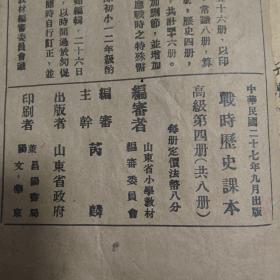 中華民國二十七年九月出版
戰時歷史課本
高級第四册(共八册)
每册定價法幣八分
編審者
山東省小學教材
編審委員會
編審
主幹 芮麟
出版者 山東省政府
印刷者
十六册，以印
常識八册，算
，歷史四册，
共計卅六册。
加調節，並增加
應戰時之特殊需
初小一二年級的
始編輯，二十六日
以時間過於匆促
隨時自行訂正，並
教材編審委員會議